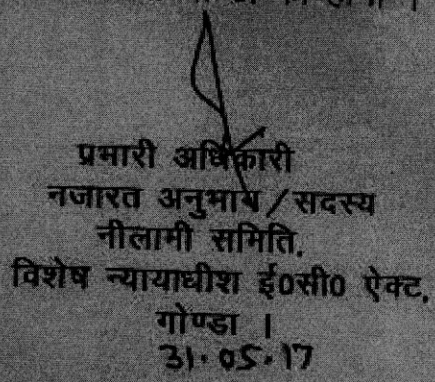 प्रभारी अधिकारी
नजारत अनुभाग/सदस्य
नीलामी समिति,
विशेष न्यायाधीश ई०सी० ऐक्ट,
गोण्डा ।
31.05.17